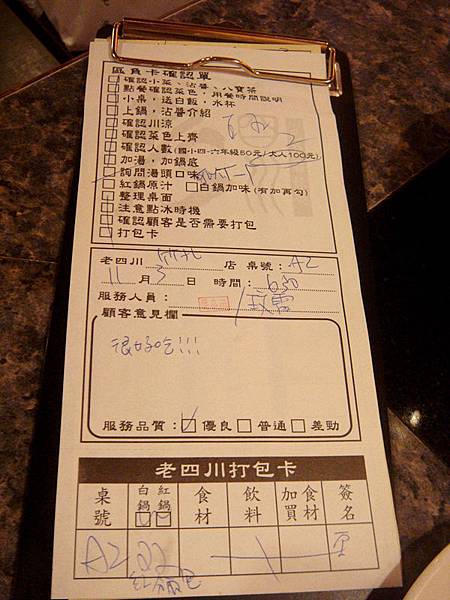 區員卡確認單
確認小菜、沾醬、八寶茶
點餐確認菜色，用餐時間說明
小桌，送白飯，水杯
上鍋，沾醬介紹
確認川涼
確認菜色上齊
確認人數(國小四-六年級50元/大人100元)
2
加湯，加鍋底
詢問湯頭口味
紅鍋原汁 白鍋加味(有加再勾)
整理桌面
注意點冰時機
確認顧客是否需要打包
打包卡
老四川 店 桌號：A2
11月3日 時間：630
服務人員：
顧客意見欄
很好吃!!!
服務品質：優良 普通 差勁
老四川打包卡
桌號 白鍋 紅鍋 食材 飲料 加買食材 簽名
A2